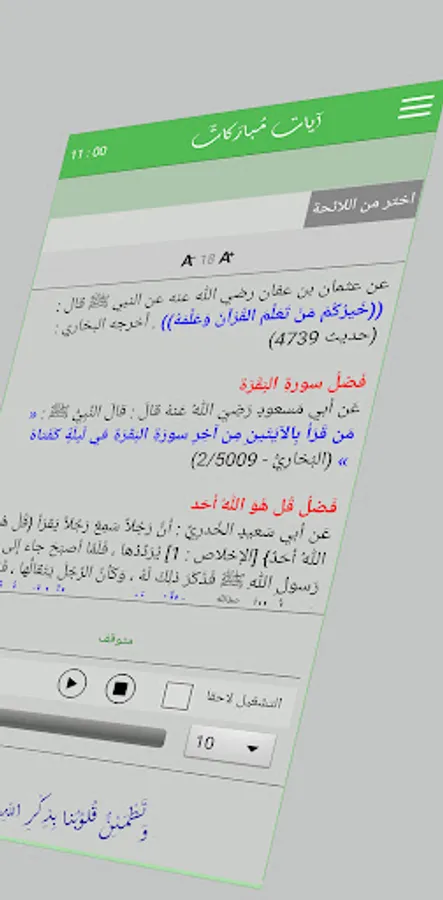 11 : 00
آيات مُباركات
اختر من اللائحة
A- 18 A+
عن عثمان بن عفان رضي الله عنه عن النبي ﷺ قال :
((خَيرُكُمْ مَن تَعَلَّم القُرْآن وَعَلَّمَهُ)) . أخرجه البخاري :
(حديث 4739)
فَضْلُ سورة البَقَرَة
عَن أبي مَسعودٍ رَضِيَ اللهُ عَنهُ قالَ : قالَ النَّبِيُّ ﷺ : «
مَن قَرَأَ بِالآيَتَينِ مِن آخِرِ سورَةِ البَقَرَةِ في لَيلَةٍ كَفَتاهُ
» (البُخاريُّ - 2/5009)
فَضْلُ قُل هُوَ اللهُ أحَد
عَن أبي سَعيدٍ الخُدريّ : أنَّ رَجُلاً سَمِعَ رَجُلاً يَقرَأُ {قُلْ هُوَ
اللهُ أحَدٌ} [الإخلاص : 1] يُرَدِّدُها ، فَلَمّا أصبَحَ جاءَ إلى
رَسولِ اللهِ ﷺ فَذَكَرَ ذلِكَ لَهُ ، وَكَأنَّ الرَّجُلَ يَتَقالُّها ،
متوقف
التشغيل لاحقا
10
وَتَطْمَئِنُّ قُلوبُنا بِذِكْرِ اللهِ